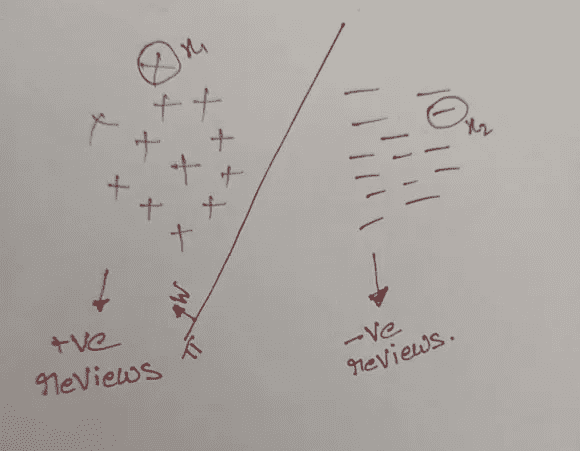 x₁
x₂
W
π
+ve
reviews
-ve
reviews.